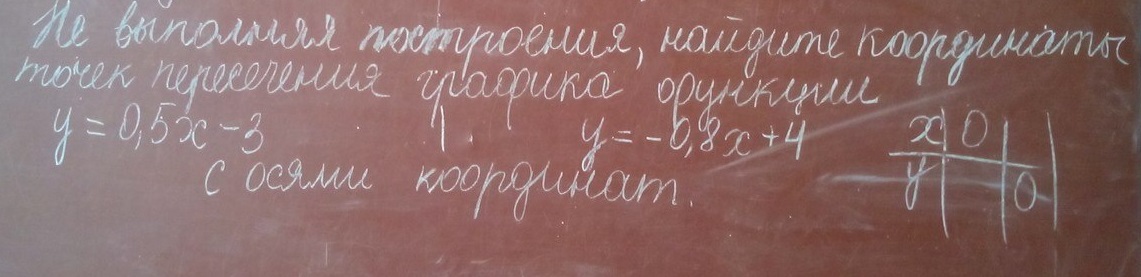 Не выполняя построения, найдите координаты
точек пересечения графика функции
y = 0,5x - 3 y = -0,8x + 4
с осями координат.
x 0
y 0